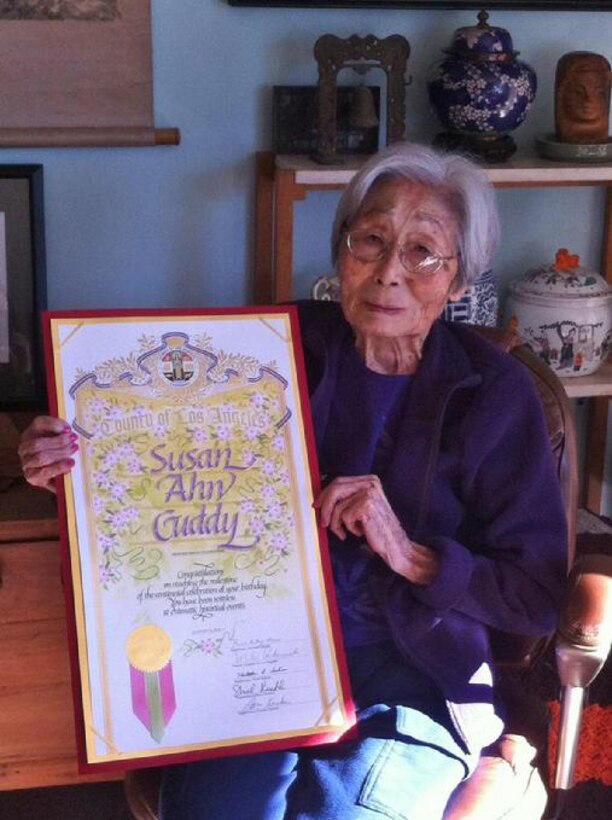 County of Los Angeles
Susan
Ahn
Cuddy
Congratulations
on reaching the milestone
of the centennial celebration of your birthday.
You have been witness
to dramatic historical events.